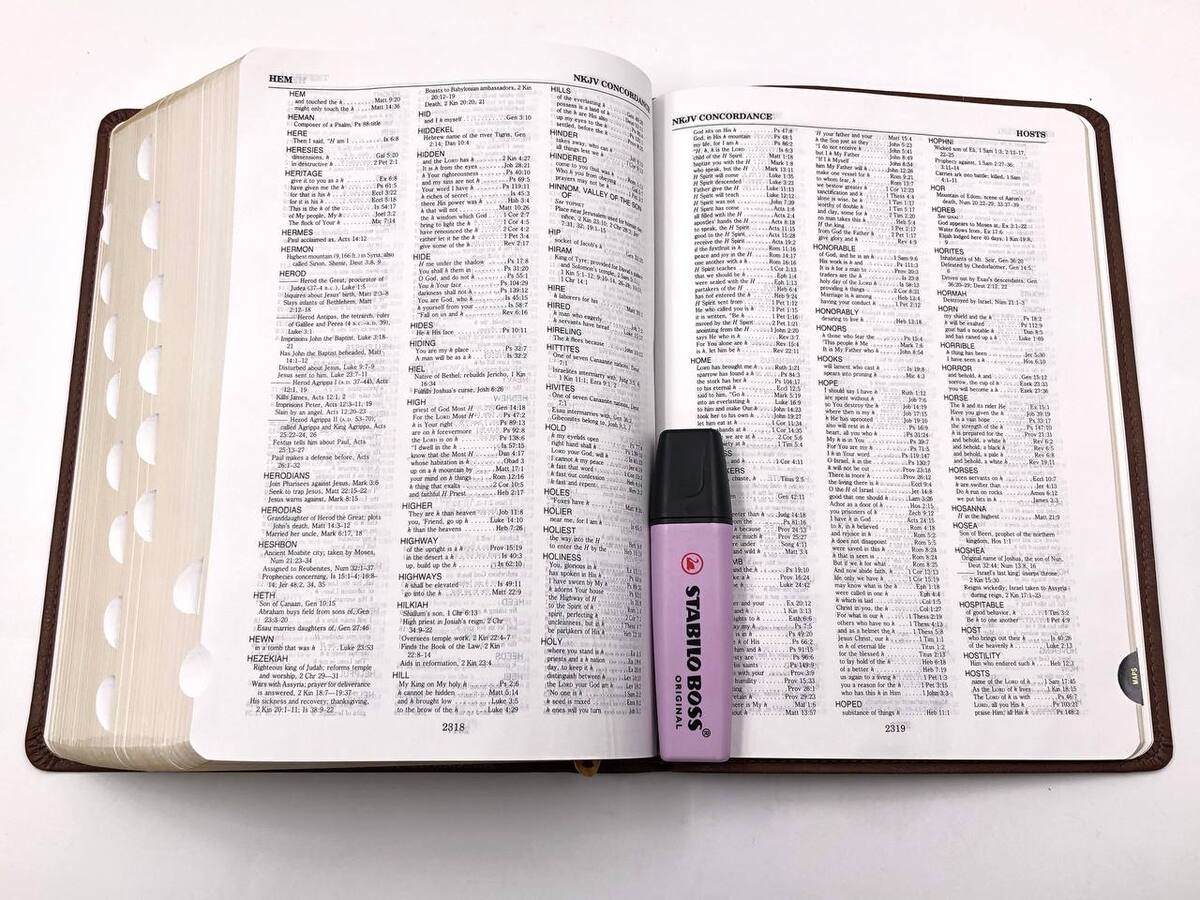 HEM
NKJV CONCORDANCE
HEM
and touched the h Matt 9:20
might only touch the h Matt 14:36
HEMAN
Composer of a Psalm, Ps 88:title
HERE
Then I said, "H am I Is 6:8
HERESIES
dissensions, h Gal 5:20
in destructive h 2 Pet 2:1
HERITAGE
give it to you as a h Ex 6:8
have given me the h Ps 61:5
for that is his h Eccl 3:22
for it is his h Eccl 5:18
This is the h of the Is 54:17
of My people, My h Joel 3:2
The flock of Your h Mic 7:14
HERMES
Paul acclaimed as, Acts 14:12
HERMON
Highest mountain (9,166 ft.) in Syria, also
called Sirion, Shenir, Deut 3:8, 9
HEROD
—— Herod the Great, procurator of
Judea (37–4 B.C.), Luke 1:5
Inquires about Jesus' birth, Matt 2:3–8
Slays infants of Bethlehem, Matt
2:12–18
—— Herod Antipas, the tetrarch, ruler
of Galilee and Perea (4 B.C.–A.D. 39),
Luke 3:1
Imprisons John the Baptist, Luke 3:18–
21
Has John the Baptist beheaded, Matt
14:1–12
Disturbed about Jesus, Luke 9:7–9
Jesus sent to him, Luke 23:7–11
—— Herod Agrippa I (A.D. 37–44), Acts
12:1, 19
Kills James, Acts 12:1, 2
Imprisons Peter, Acts 12:3–11, 19
Slain by an angel, Acts 12:20–23
—— Herod Agrippa II (A.D. 53–70),
called Agrippa and King Agrippa, Acts
25:22–24, 26
Festus tells him about Paul, Acts
25:13–27
Paul makes a defense before, Acts
26:1–32
HERODIANS
Join Pharisees against Jesus, Mark 3:6
Seek to trap Jesus, Matt 22:15–22
Jesus warns against, Mark 8:15
HERODIAS
Granddaughter of Herod the Great; plots
John's death, Matt 14:3–12
Married her uncle, Mark 6:17, 18
HESHBON
Ancient Moabite city; taken by Moses,
Num 21:23–34
Assigned to Reubenites, Num 32:1–37
Prophecies concerning, Is 15:1–4; 16:8–
14; Jer 48:2, 34, 35
HETH
Son of Canaan, Gen 10:15
Abraham buys field from sons of, Gen
23:3–20
Esau marries daughters of, Gen 27:46
HEWN
in a tomb that was h Luke 23:53
HEZEKIAH
Righteous king of Judah; reforms temple
and worship, 2 Chr 29–31
Wars with Assyria; prayer for deliverance
is answered, 2 Kin 18:7—19:37
His sickness and recovery; thanksgiving,
2 Kin 20:1–11; Is 38:9–22
Boasts to Babylonian ambassadors, 2 Kin
20:12–19
Death, 2 Kin 20:20, 21
HID
and I h myself Gen 3:10
HIDDEKEL
Hebrew name of the river Tigris, Gen
2:14; Dan 10:4
HIDDEN
and the LORD has h 2 Kin 4:27
It is h from the eyes Job 28:21
h Your righteousness Ps 40:10
and my sins are not h Ps 69:5
Your word I have h Ps 119:11
of secret h Is 45:3
there His power was h Hab 3:4
h that will not Matt 10:26
the h wisdom which God 1 Cor 2:7
bring to light the h 1 Cor 4:5
have renounced the h 2 Cor 4:2
rather let it be the h 1 Pet 3:4
give some of the h Rev 2:17
HIDE
H me under the shadow Ps 17:8
You shall h them in Ps 31:20
O God, and do not h Ps 55:1
You h Your face Ps 104:29
darkness shall not h Ps 139:12
You are God, who h Is 45:15
h yourself from your Is 58:7
"Fall on us and h Rev 6:16
HIDES
He h His face Ps 10:11
HIDING
You are my h place Ps 32:7
A man will be as a h Is 32:2
HIEL
Native of Bethel; rebuilds Jericho, 1 Kin
16:34
Fulfills Joshua's curse, Josh 6:26
HIGH
priest of God Most H Gen 14:18
For the LORD Most H Ps 47:2
h is Your right Ps 89:13
are on h forevermore Ps 92:8
the LORD is on h Ps 138:6
"I dwell in the h Is 57:15
know that the Most H Dan 4:17
whose habitation is h Obad 3
up on a h mountain by Matt 17:1
your mind on h things Rom 12:16
h thing that exalts 2 Cor 10:5
and faithful H Priest Heb 2:17
HIGHER
They are h than heaven Job 11:8
you, 'Friend, go up h Luke 14:10
h than the heavens Heb 7:26
HIGHWAY
of the upright is a h Prov 15:19
in the desert a h Is 40:3
up, build up the h Is 62:10
HIGHWAYS
h shall be elevated Is 49:11
go into the h Matt 22:9
HILKIAH
Shallum's son, 1 Chr 6:13
High priest in Josiah's reign, 2 Chr
34:9–22
Oversees temple work, 2 Kin 22:4–7
Finds the Book of the Law, 2 Kin
22:8–14
Aids in reformation, 2 Kin 23:4
HILL
My King on My holy h Ps 2:6
h cannot be hidden Matt 5:14
and h brought low Luke 3:5
to the brow of the h Luke 4:29
HILLS
of the everlasting h
possess is a land of h
of the h are His also
up my eyes to the h
settled, before the h
HINDER
takes away, who can h
all things lest we h
HINDERED
come to you (but was h
Who h you from obeying
prayers may not be h
HINNOM, VALLEY OF THE SON
OF
See TOPHET
Place near Jerusalem used for human
HIP
socket of Jacob's h
HIRAM
King of Tyre; provided for David's palace
and Solomon's temple, 2 Sam
1 Chr 14:1
HIRE
h laborers for his
HIRED
h man who eagerly
h servants have bread
HIRELING
The h flees because
HITTITES
One of seven Canaanite nations, Deut
7:1
Israelites intermarry with
HIVITES
One of seven Canaanite nations, Deut
7:1
Esau intermarries with, Gen
Gibeonites belong to, Josh
HOLD
h my eyelids open
right hand shall h
LORD your God, will h
I cannot h my peace
h fast that word
h fast our confession
h fast and repent
HOLES
"Foxes have h
HOLIER
near me, for I am h
HOLIEST
the way into the H
to enter the H by the
HOLINESS
You, glorious in h
has spoken in His h
I have sworn by My h
h adorns Your house
the Highway of H
to the Spirit of h
spirit, perfecting h
uncleanness, but in h
be partakers of His h
HOLY
where you stand is h
priests and a h nation
day, to keep it h
distinguish between h
the LORD your God am h
"No one is h
h seed is mixed
h ones will you turn
2318
NKJV CONCORDANCE
HOSTS
God sits on His h Ps 47:8
God, in His h mountain Ps 48:1
my life, for I am h Ps 86:2
"H, h, h is the LORD Is 6:3
child of the H Spirit Matt 1:18
baptize you with the H Mark 1:8
who speak, but the H Mark 13:11
H Spirit will come Luke 1:35
H Spirit descended Luke 3:22
Father give the H Luke 11:13
H Spirit will teach Luke 12:12
H Spirit was not John 7:39
H Spirit has come Acts 1:8
all filled with the H Acts 2:4
apostles' hands the H Acts 8:18
to speak, the H Spirit Acts 11:15
good to the H Spirit Acts 15:28
receive the H Spirit Acts 19:2
if the firstfruit is h Rom 11:16
peace and joy in the H Rom 14:17
one another with a h Rom 16:16
H Spirit teaches 1 Cor 2:13
that we should be h Eph 1:4
were sealed with the H Eph 1:13
partakers of the H Heb 6:4
has not entered the H Heb 9:24
H Spirit sent from 1 Pet 1:12
He who called you is h 1 Pet 1:15
it is written, "Be h 1 Pet 1:16
moved by the H Spirit 2 Pet 1:21
anointing from the H 1 John 2:20
says He who is h Rev 3:7
For You alone are h Rev 15:4
is h, let him be h Rev 22:11
HOME
LORD has brought me h Ruth 1:21
sparrow has found a h Ps 84:3
the stork has her h Ps 104:17
to his eternal h Eccl 12:5
said to him, "Go h Mark 5:19
into an everlasting h Luke 16:9
to him and make Our h John 14:23
took her to his own h John 19:27
let him eat at h 1 Cor 11:34
1 Cor 14:35
we are at h 2 Cor 5:6
piety at h 1 Tim 5:4
1 Cor 4:11
KERS
chaste, h Titus 2:5
Gen 42:11
Judg 14:18
Ps 81:16
Prov 25:27
Song 4:11
Matt 3:4
MB
Ps 19:10
Prov 16:24
Luke 24:42
Ex 20:12
1 Kin 3:13
Esth 6:6
Ps 7:5
Ps 49:20
Ps 66:2
Ps 91:15
Ps 96:6
Ps 149:9
Prov 3:9
Prov 15:33
Prov 26:1
Prov 29:23
Mal 1:6
Matt 13:57
'H your father and your Matt 15:4
h the Son just as they John 5:23
"I do not receive h John 5:41
but I h My Father John 8:49
"If I h Myself John 8:54
him My Father will h John 12:26
make one vessel for h Rom 9:21
to whom fear, h Rom 13:7
we bestow greater h 1 Cor 12:23
sanctification and h 1 Thess 4:4
alone is wise, be h 1 Tim 1:17
worthy of double h 1 Tim 5:17
and clay, some for h 2 Tim 2:20
man takes this h Heb 5:4
H the king 1 Pet 2:17
from God the Father h 2 Pet 1:17
give glory and h Rev 4:9
HONORABLE
of God, and he is an h 1 Sam 9:6
His work is h and Ps 111:3
It is h for a man to Prov 20:3
traders are the h Is 23:8
holy day of the LORD h Is 58:13
providing h things 2 Cor 8:21
Marriage is h among Heb 13:4
having your conduct h 1 Pet 2:12
HONORABLY
desiring to live h Heb 13:18
HONORS
h those who fear the Ps 15:4
'This people h Me Mark 7:6
It is My Father who h John 8:54
HOOKS
will lament who cast h Is 19:8
spears into pruning h Mic 4:3
HOPE
I should say I have h Ruth 1:12
are spent without h Job 7:6
so You destroy the h Job 14:19
where then is my h Job 17:15
h He has uprooted Job 19:10
also will rest in h Ps 16:9
heart, all you who h Ps 31:24
My h is in You Ps 39:7
For You are my h Ps 71:5
I h in Your word Ps 119:147
O Israel, h in the Ps 130:7
h will not be cut Prov 23:18
There is more h Prov 26:12
the living there is h Eccl 9:4
O the H of Israel Jer 14:8
good that one should h Lam 3:26
Achor as a door of h Hos 2:15
you prisoners of h Zech 9:12
I have h in God Acts 24:15
to h, in h believed Rom 4:18
and rejoice in h Rom 5:2
h does not disappoint Rom 5:5
were saved in this h Rom 8:24
h that is seen is Rom 8:24
But if we h for what Rom 8:25
And now abide faith, h 1 Cor 13:13
life only we have h 1 Cor 15:19
may know what is the h Eph 1:18
were called in one h Eph 4:4
h which is laid Col 1:5
Christ in you, the h Col 1:27
For what is our h 1 Thess 2:19
others who have no h 1 Thess 4:13
and as a helmet the h 1 Thess 5:8
Jesus Christ, our h 1 Tim 1:1
in h of eternal life Titus 1:2
for the blessed h Titus 2:13
to lay hold of the h Heb 6:18
of a better h Heb 7:19
us again to a living h 1 Pet 1:3
you a reason for the h 1 Pet 3:15
who has this h in Him 1 John 3:3
HOPED
substance of things h Heb 11:1
HOPHNI
Wicked son of Eli, 1 Sam 1:3; 2:12–17,
22–25
Prophecy against, 1 Sam 2:27–36;
3:11–14
Carries ark into battle; killed, 1 Sam
4:1–11
HOR
Mountain of Edom; scene of Aaron's
death, Num 20:22–29; 33:37–39
HOREB
See SINAI
God appears to Moses at, Ex 3:1–22
Water flows from, Ex 17:6
Elijah lodged here 40 days, 1 Kin 19:8,
9
HORITES
Inhabitants of Mt. Seir, Gen 36:20
Defeated by Chedorlaomer, Gen 14:5,
6
Driven out by Esau's descendants, Gen
36:20–29; Deut 2:12, 22
HORMAH
Destroyed by Israel, Num 21:1–3
HORN
my shield and the h Ps 18:2
h will be exalted Ps 112:9
goat had a notable h Dan 8:5
and has raised up a h Luke 1:69
HORRIBLE
h thing has been Jer 5:30
I have seen a h Hos 6:10
HORROR
and behold, h and Gen 15:12
sorrow, the cup of h Ezek 23:33
you will become a h Ezek 27:36
HORSE
The h and its rider He Ex 15:1
Have you given the h Job 39:19
h is a vain hope Ps 33:17
the strength of the h Ps 147:10
h is prepared for the Prov 21:31
and behold, a white h Rev 6:2
and behold, a black h Rev 6:5
and behold, a pale h Rev 6:8
and behold, a white h Rev 19:11
HORSES
seen servants on h Eccl 10:7
h are swifter than Jer 4:13
Do h run on rocks Amos 6:12
we put bits in h James 3:3
HOSANNA
H in the highest Matt 21:9
HOSEA
Son of Beeri, prophet of the northern
kingdom, Hos 1:1
HOSHEA
Original name of Joshua, the son of Nun,
Deut 32:44; Num 13:8, 16
—— Israel's last king; usurps throne,
2 Kin 15:30
Reigns wickedly; Israel taken to Assyria
during reign, 2 Kin 17:1–23
HOSPITABLE
of good behavior, h 1 Tim 3:2
Be h to one another 1 Pet 4:9
HOST
who brings out their h Is 40:26
of the heavenly h Luke 2:13
HOSTILITY
Him who endured such h Heb 12:3
HOSTS
name of the LORD of h 1 Sam 17:45
As the LORD of h lives 1 Kin 18:15
The LORD of h is with Ps 46:7
LORD, all you His h Ps 103:21
praise Him, all His h Ps 148:2
2319
MAPS
STABILO BOSS®
ORIGINAL